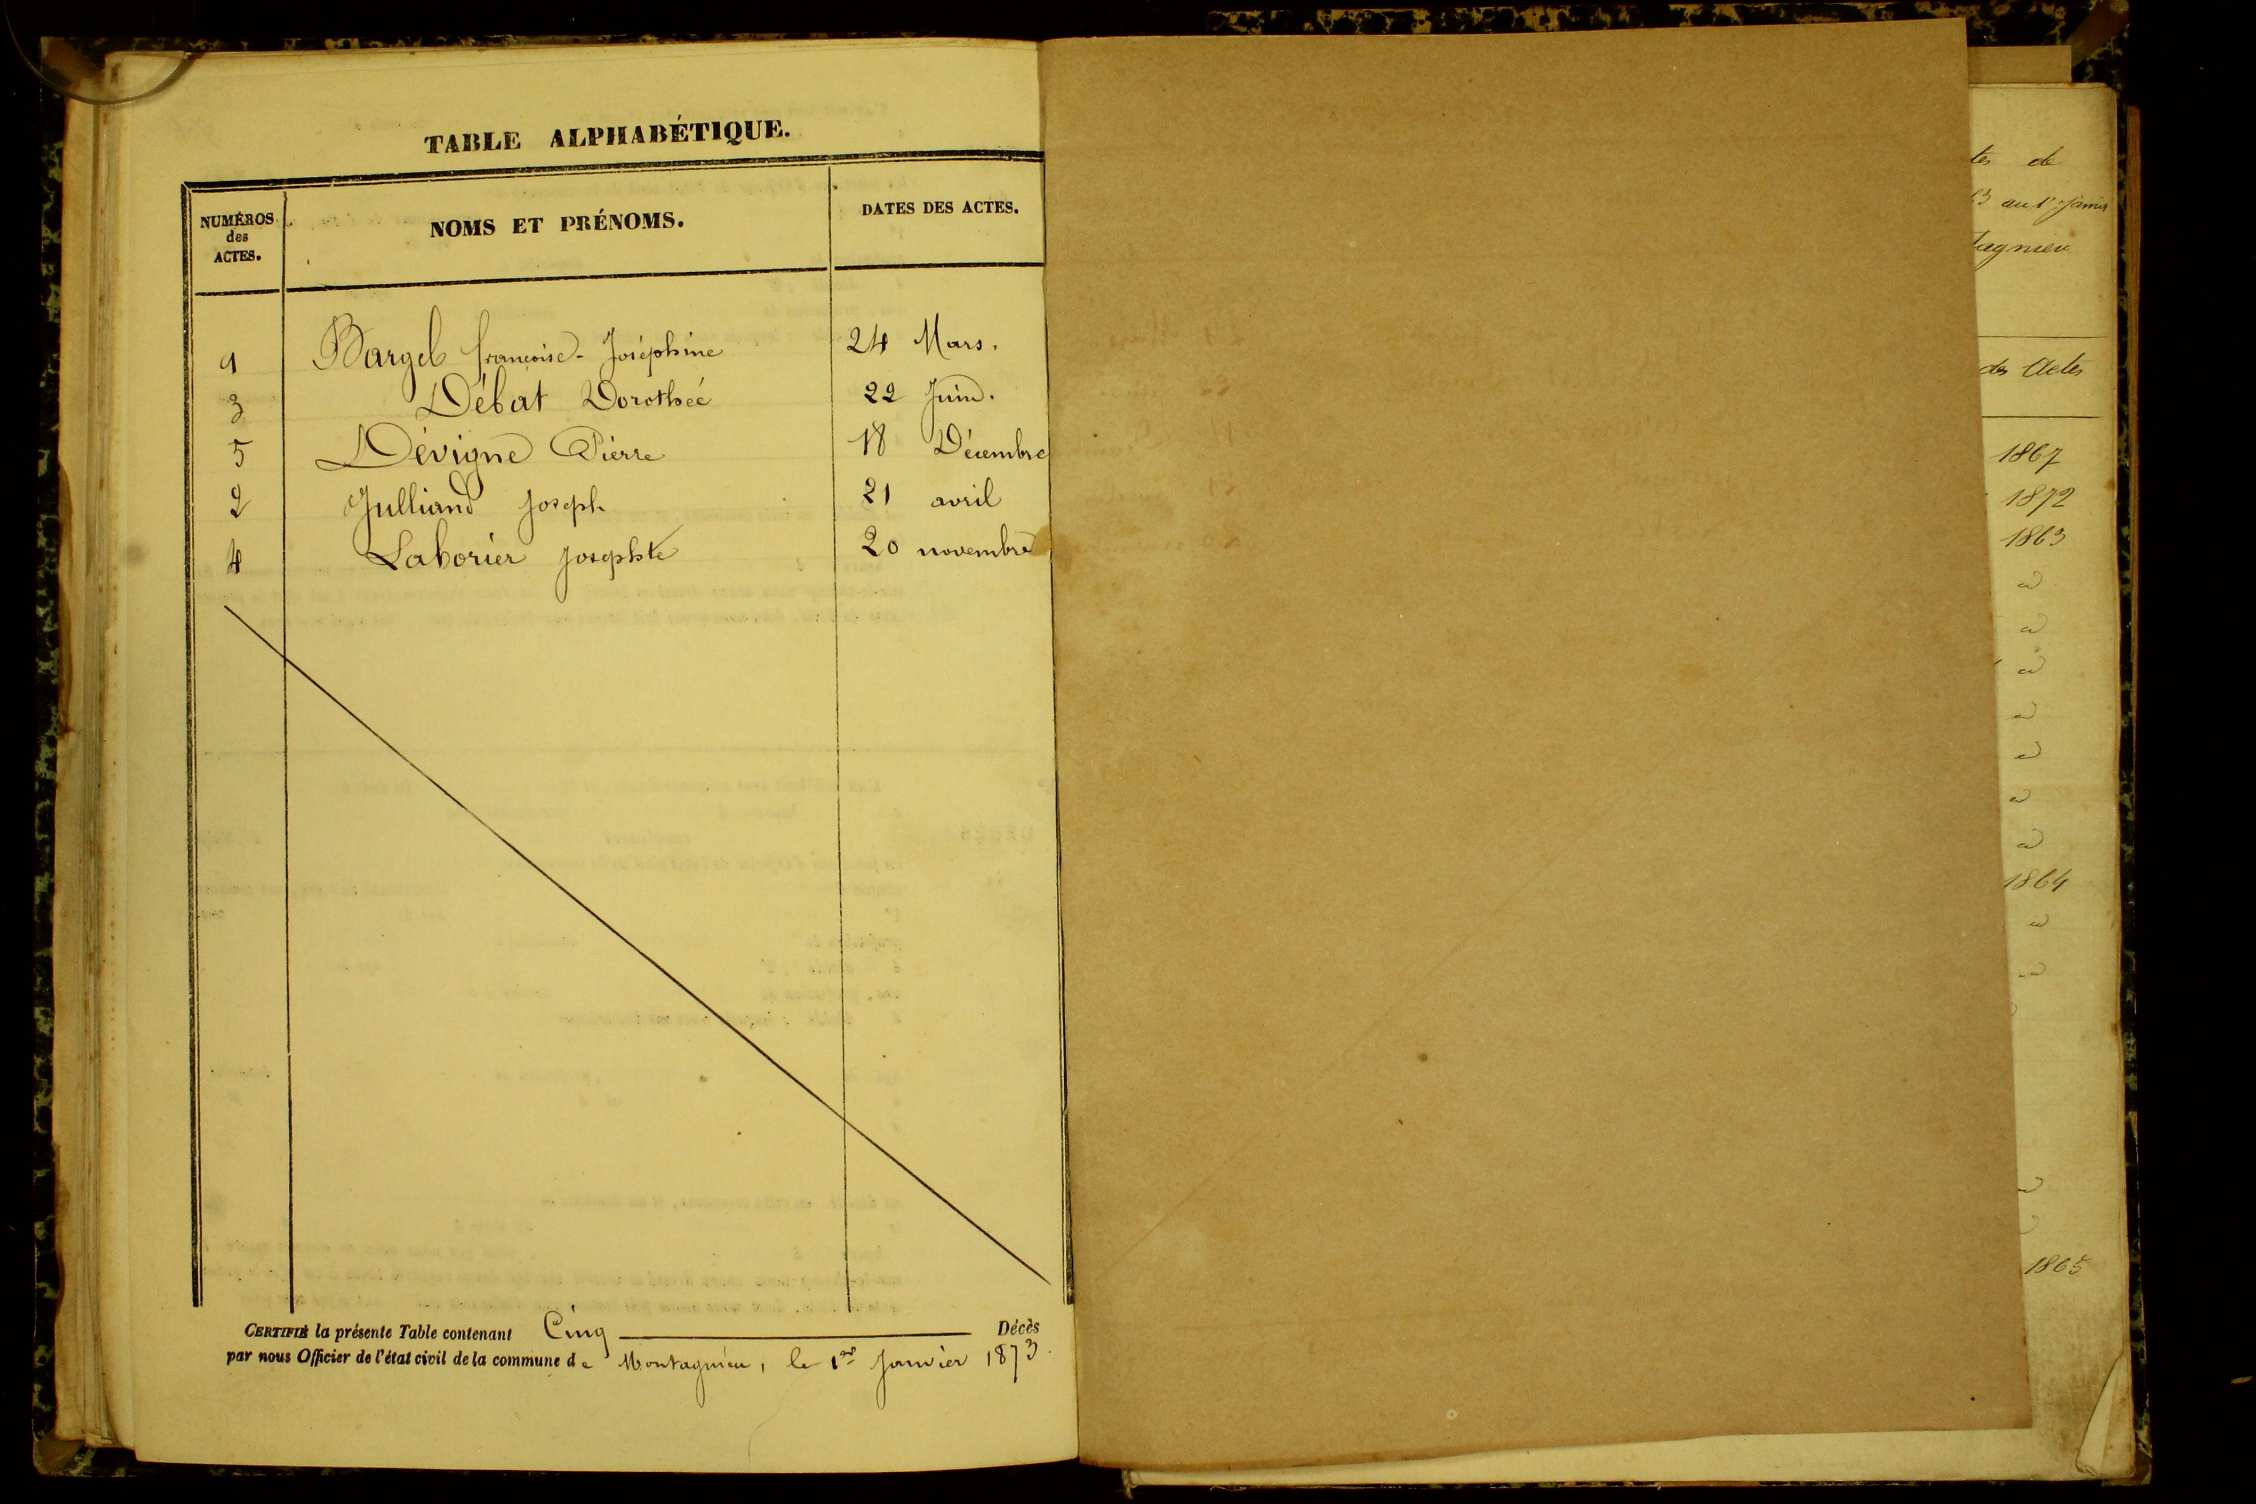 TABLE ALPHABÉTIQUE.
NUMÉROS des ACTES.
NOMS ET PRÉNOMS.
DATES DES ACTES.
1 Bargel françoise-Joséphine 24 Mars.
3 Débat Dorothée 22 Juin.
5 Dévigne Pierre 18 Décembre
2 Julliand Joseph 21 avril
4 Laborier Josephte 20 novembre
CERTIFIÉ la présente Table contenant Cinq Décès
par nous Officier de l'état civil de la commune de Montagnieu, le 1er Janvier 1873.
tes de
63 au 1er Janvier
tagnieu
des Actes
1867
1872
1863
1864
1865